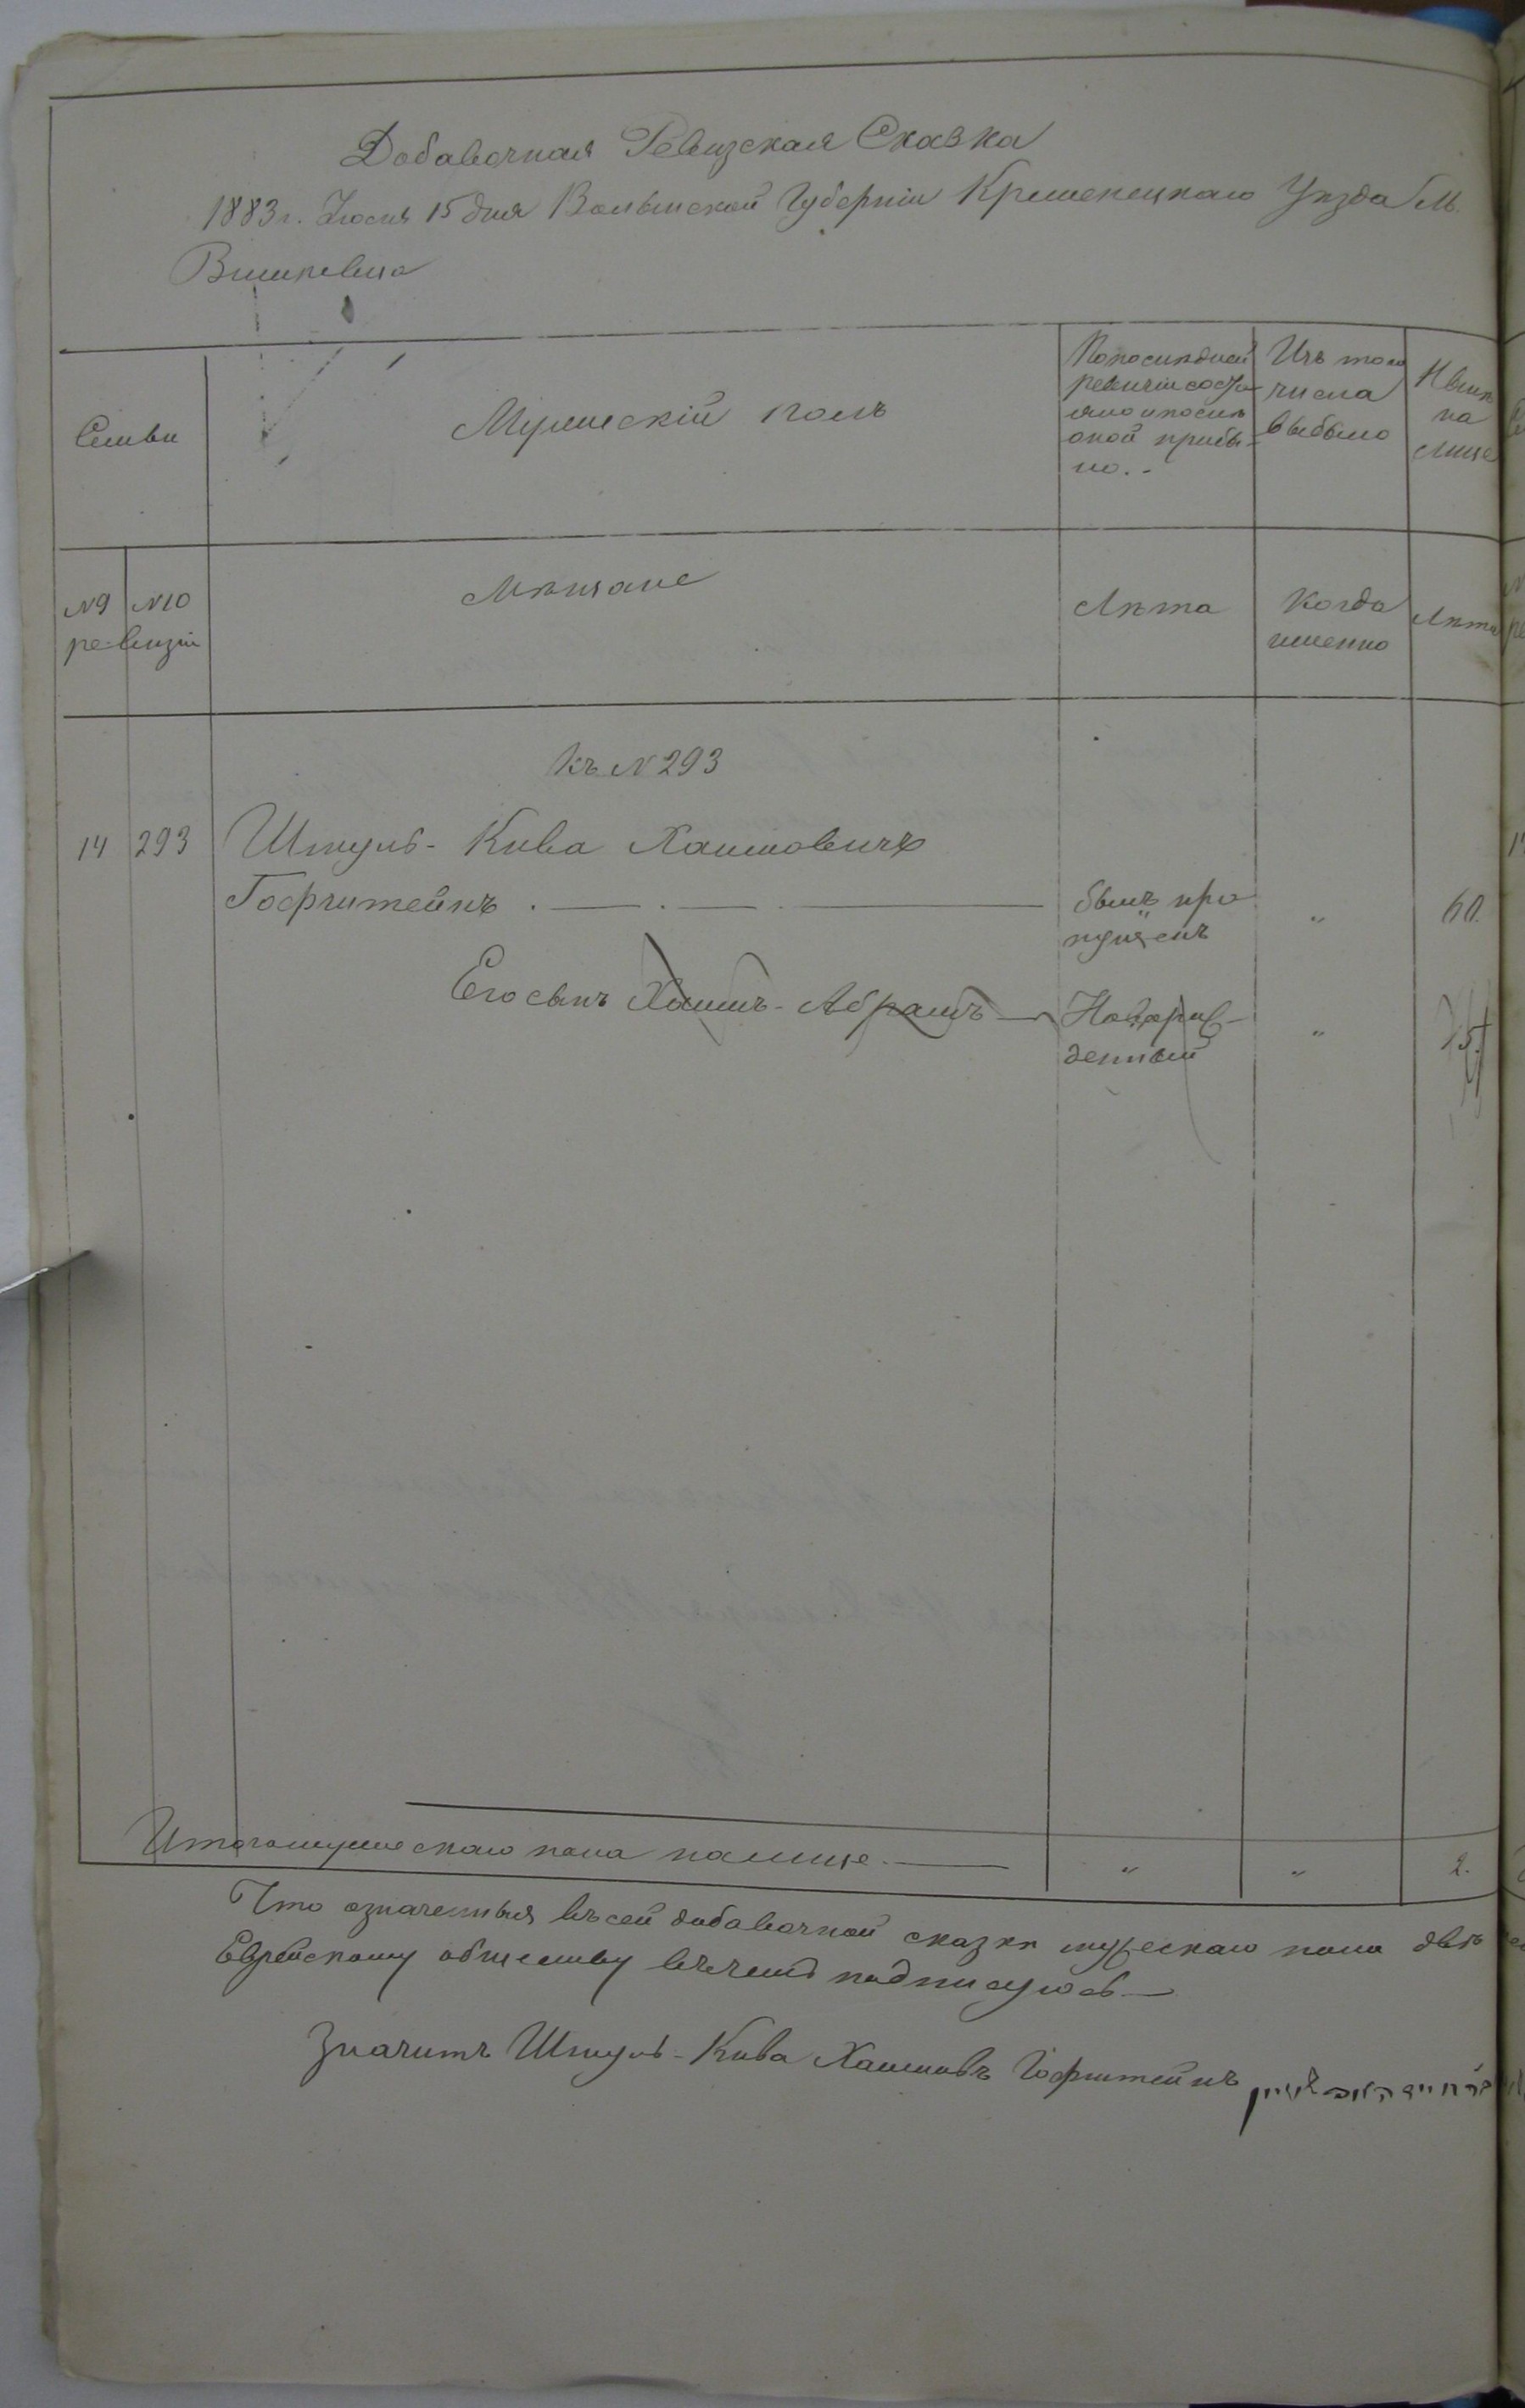 Добавочная Ревизская Сказка
1883 г. Июня 15 дня Волынской Губерніи Кременецкаго Уѣзда М.
Вишневца
Семьи
Мужескій полъ
По послѣдней
ревизіи состо-
яло и послѣ
оной прибы-
ло.
Изъ того
числа
выбыло
Нынѣ
на
лице
№9 №10
ревизіи
Мѣщане
Лѣта
Когда
именно
Лѣта
Къ № 293
14 293 Шмуль-Кива Хаимовичъ
Гофштейнъ былъ про- " 60.
пущенъ
Его сынъ Хаимъ-Абрамъ Новорож- "
денный
Итого мужескаго пола на лице " " 2.
Что означенныя въ сей добавочной сказкѣ мужескаго пола двѣ
Еврейскому обществу въ чемъ подписуюсь
Значитъ Шмуль-Кива Хаимовъ Гофштейнъ